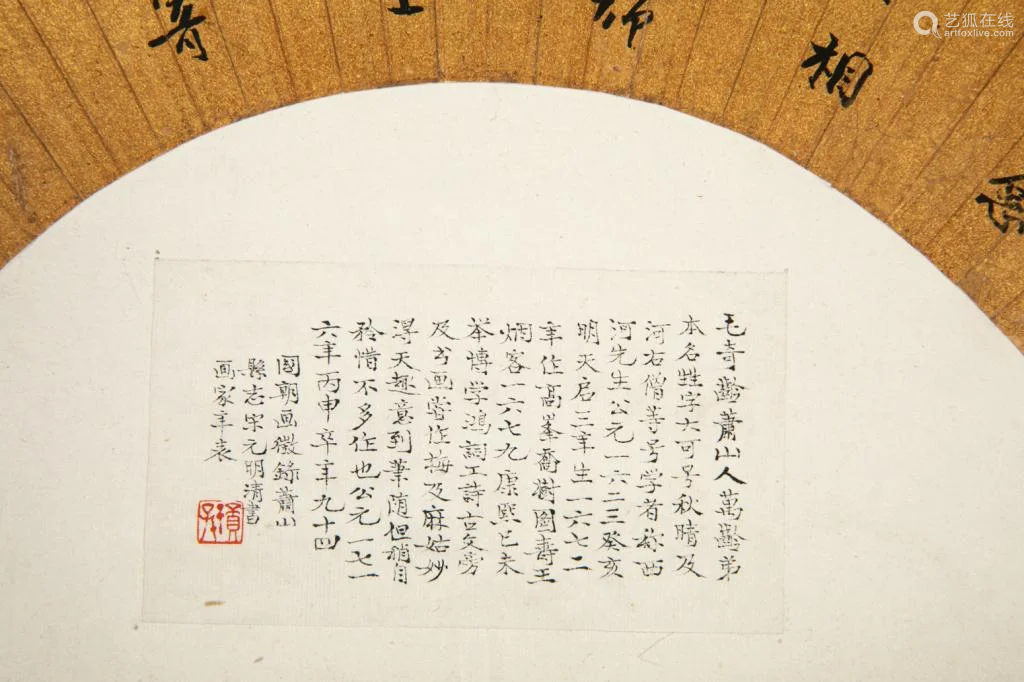 相
寄
毛奇齡蕭山人萬齡弟
本名甡字大可号秋晴及
河右僧等号学者称西
河先生公元一六二三癸亥
明天启三年生一六七二
年作高峯喬樹圖壽王
烟客一六七九康熙己未
举博学鴻詞工詩古文旁
及书画嘗作梅及麻姑妙
得天趣意到筆随但稍自
矜惜不多作也公元一七一
六年丙申卒年九十四
國朝画徵錄蕭山
縣志宋元明清書
画家年表
艺狐在线
artfoxlive.com